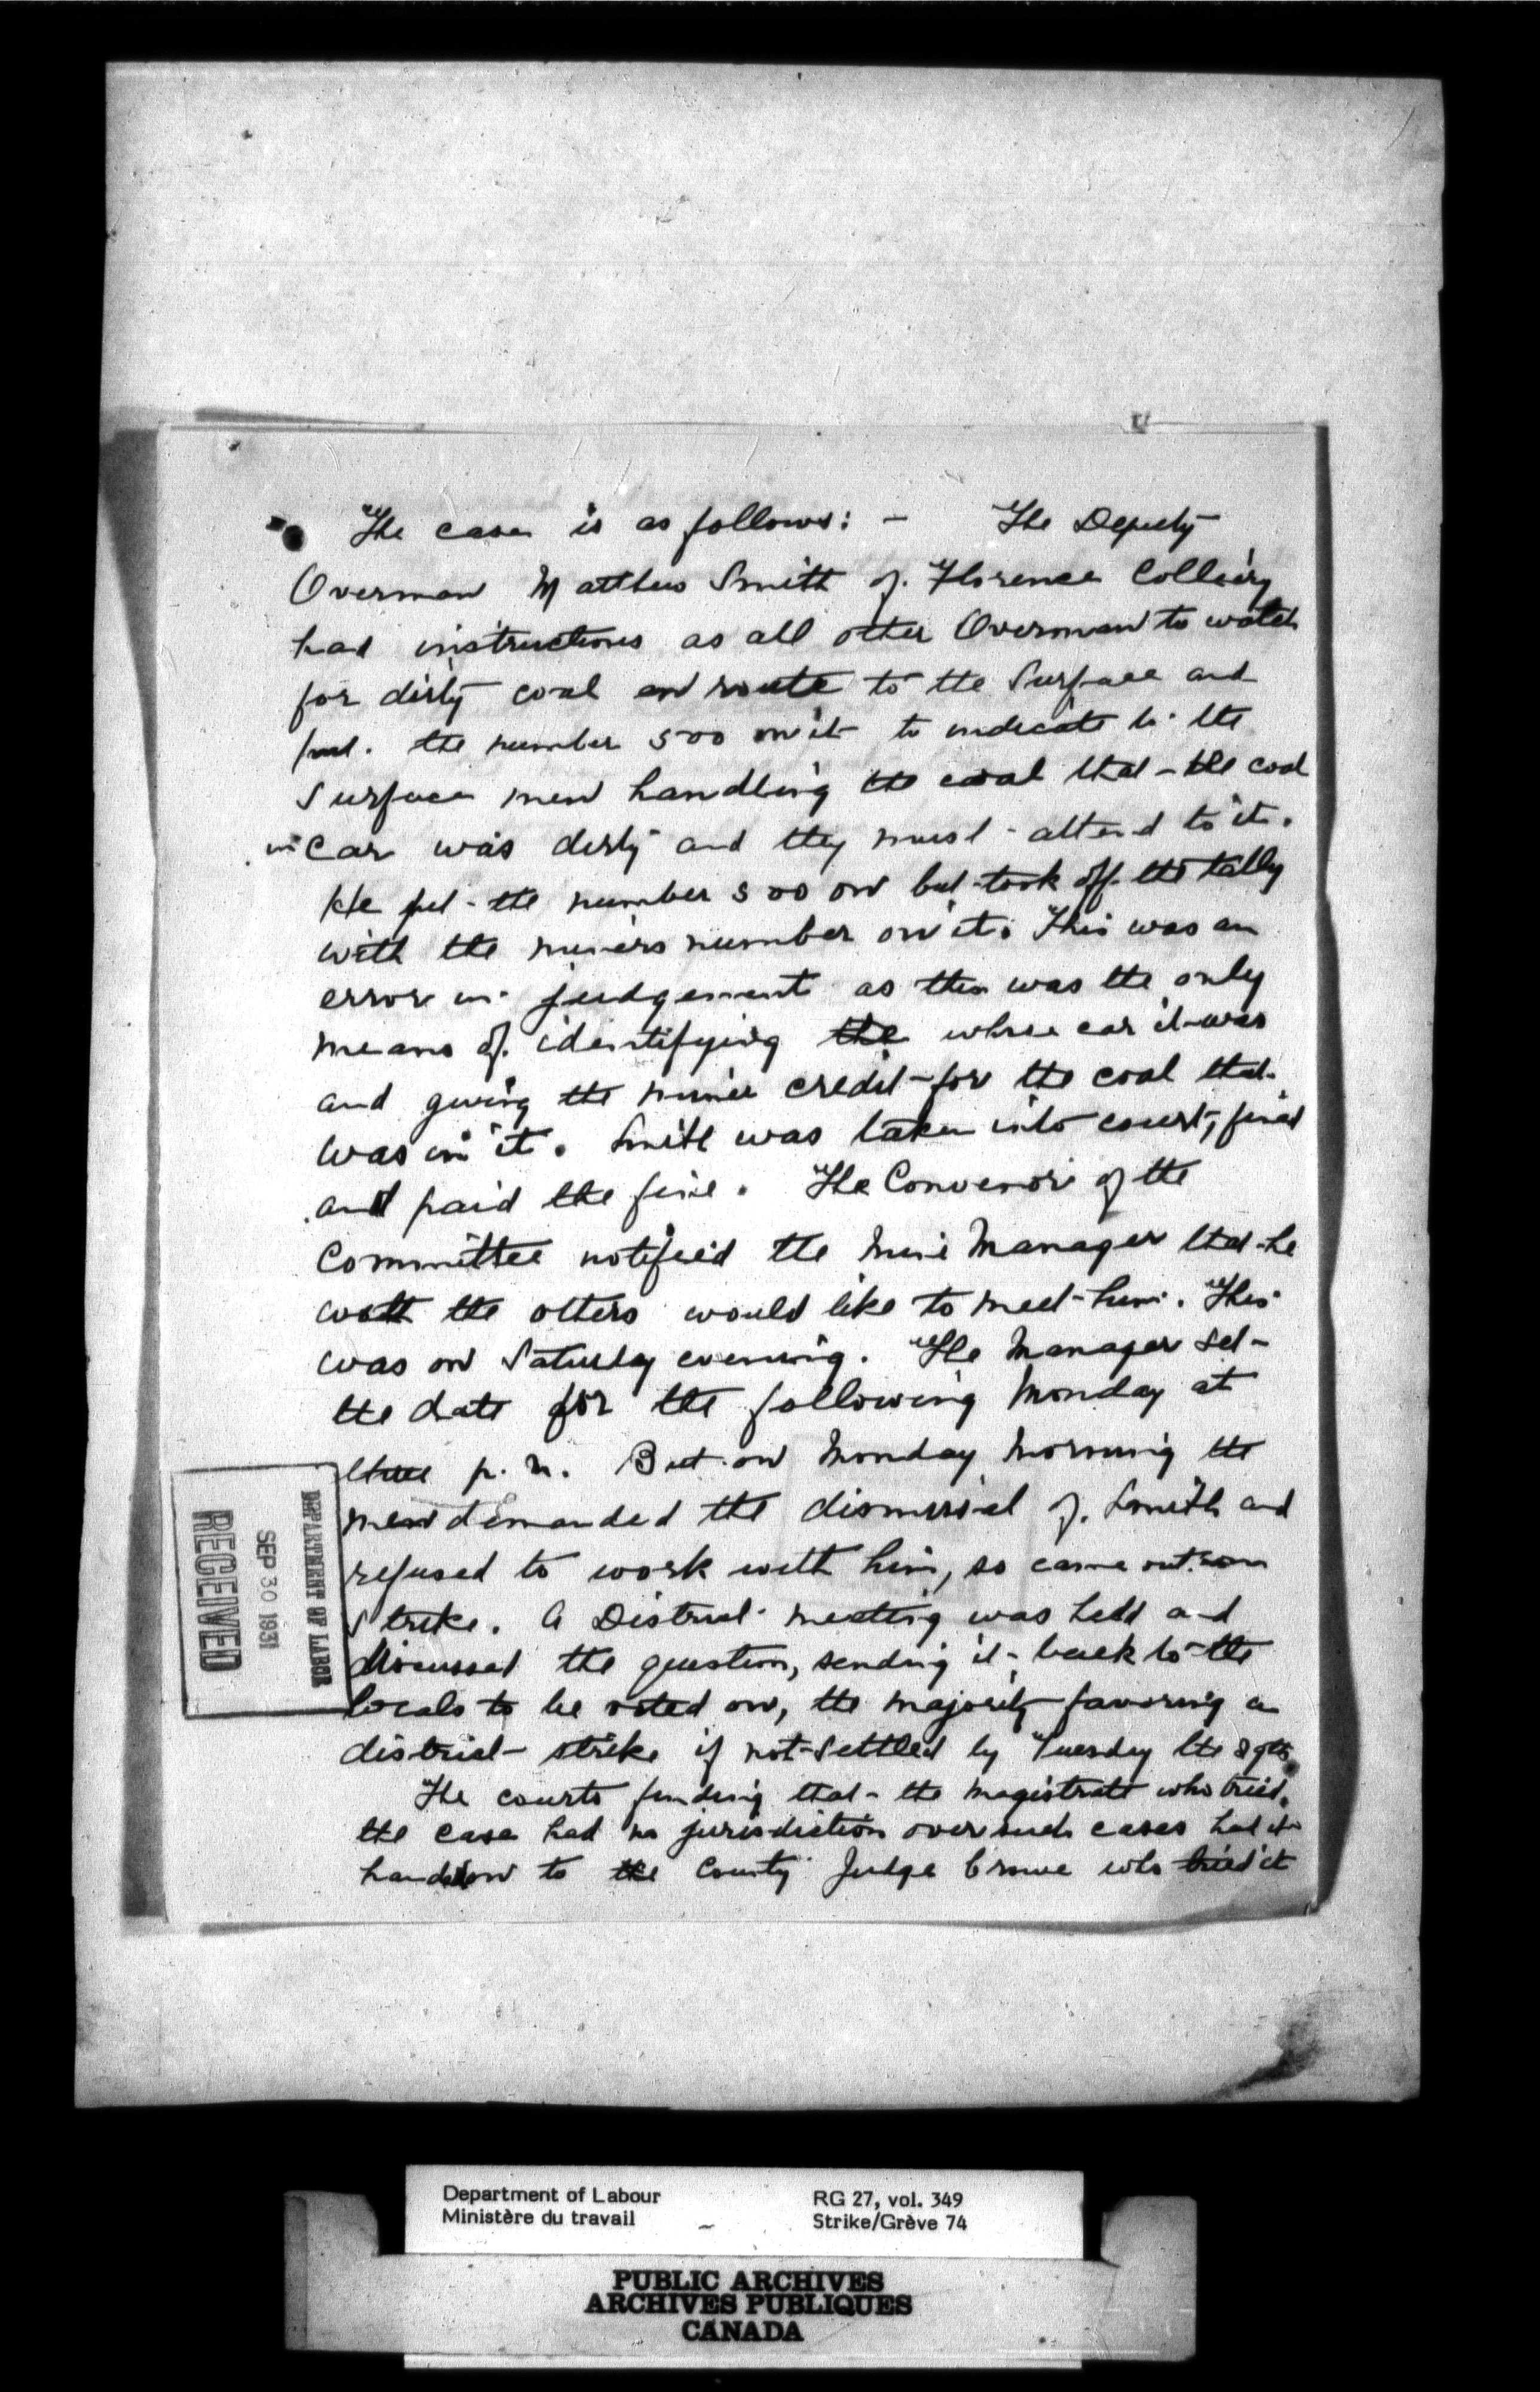 The case is as follows: - The Deputy
Overman Matthew Smith of Florence Colliery
had instructions as all other Overman to watch
for dirty coal en route to the Surface and
put the number 500 on it to indicate to the
Surface men handling the coal that the coal
in car was dirty and they must attend to it.
He put the number 500 on but took off the tally
with the miners number on it. This was an
error in judgement as this was the only
means of identifying the whose car it was
and giving the miner credit for the coal that
was in it. Smith was taken into court, fined
and paid the fine. The Convenor of the
Committee notified the Mine Manager that he
with the others would like to meet him. This
was on Saturday evening. The Manager set
the date for the following Monday at
three p.m. But on Monday morning the
men demanded the dismissal of Smith and
refused to work with him, so came out on
Strike. A District meeting was held and
discussed the question, sending it back to the
locals to be voted on, the majority favoring a
district strike if not settled by Tuesday the 29th
The courts finding that the magistrate who tried
the case had no jurisdiction over such cases had it
handed to the County Judge Crowe who tried it
DEPARTMENT OF LABOR
SEP 30 1931
RECEIVED
Department of Labour RG 27, vol. 349
Ministère du travail Strike/Grève 74
PUBLIC ARCHIVES
ARCHIVES PUBLIQUES
CANADA